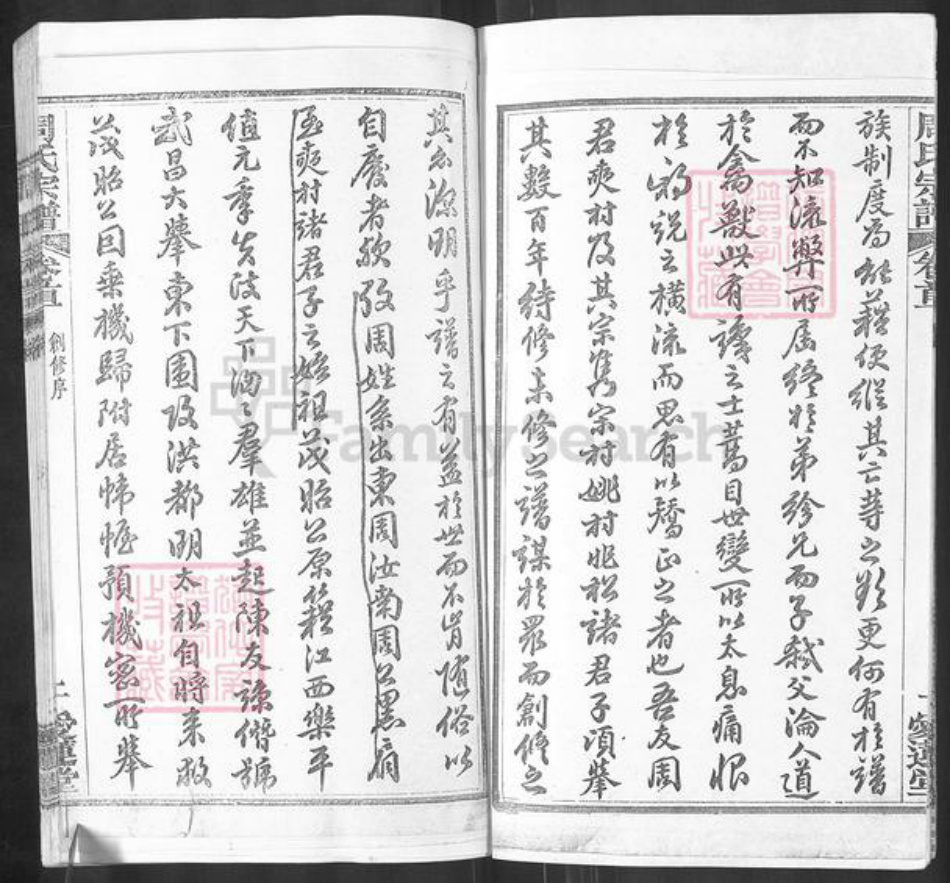 族制度為
便縱其亡等之欲更何有於譜
而不知流弊所屆終於弟紾兄而子弒父淪人道
於禽獸此有識之士蒿目世變所以太息痛恨
於邪說之橫流而思有以矯正之者也吾友周
君爽村及其宗雋宗村姚村兆松諸君子頃舉
其數百年待修未修之譜謀於眾而創修之
周氏宗譜
卷首
愛蓮堂
其
源明乎譜之有益於世而不肯隨俗以
自廢者歟攷周姓系出東周汝南周公黑肩
爽村諸君子之始祖茂昭公原籍江西樂平
值元季失波天下洶洶群雄並起陳友諒僭號
武昌大舉東下圍攻洪都明太祖自將來救
茂昭公因乘機歸附居帷幄預機密所舉
周氏宗譜
卷首
創修序
二
愛蓮堂
FamilySearch